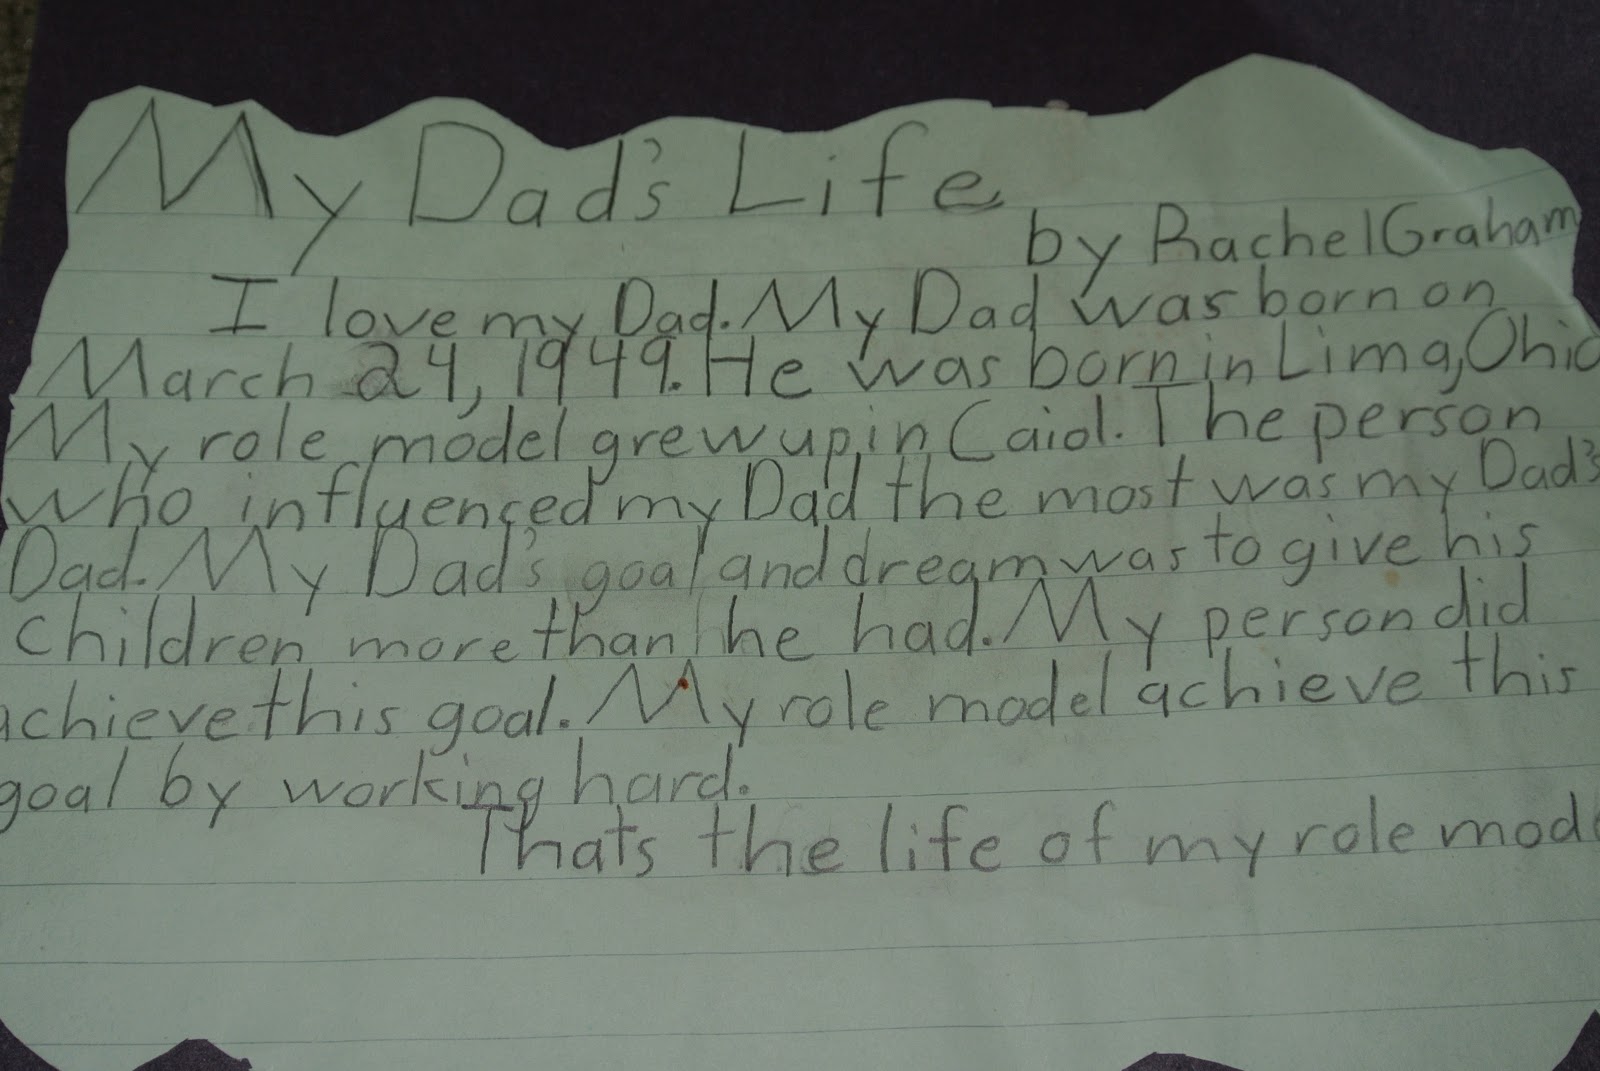 My Dad's Life
by Rachel Graham
I love my Dad. My Dad was born on
March 24, 1949. He was born in Lima, Ohio
My role model grew up in Caiol. The person
who influenced my Dad the most was my Dad's
Dad. My Dad's goal and dream was to give his
children more than he had. My person did
achieve this goal. My role model achieve this
goal by working hard.
Thats the life of my role mod